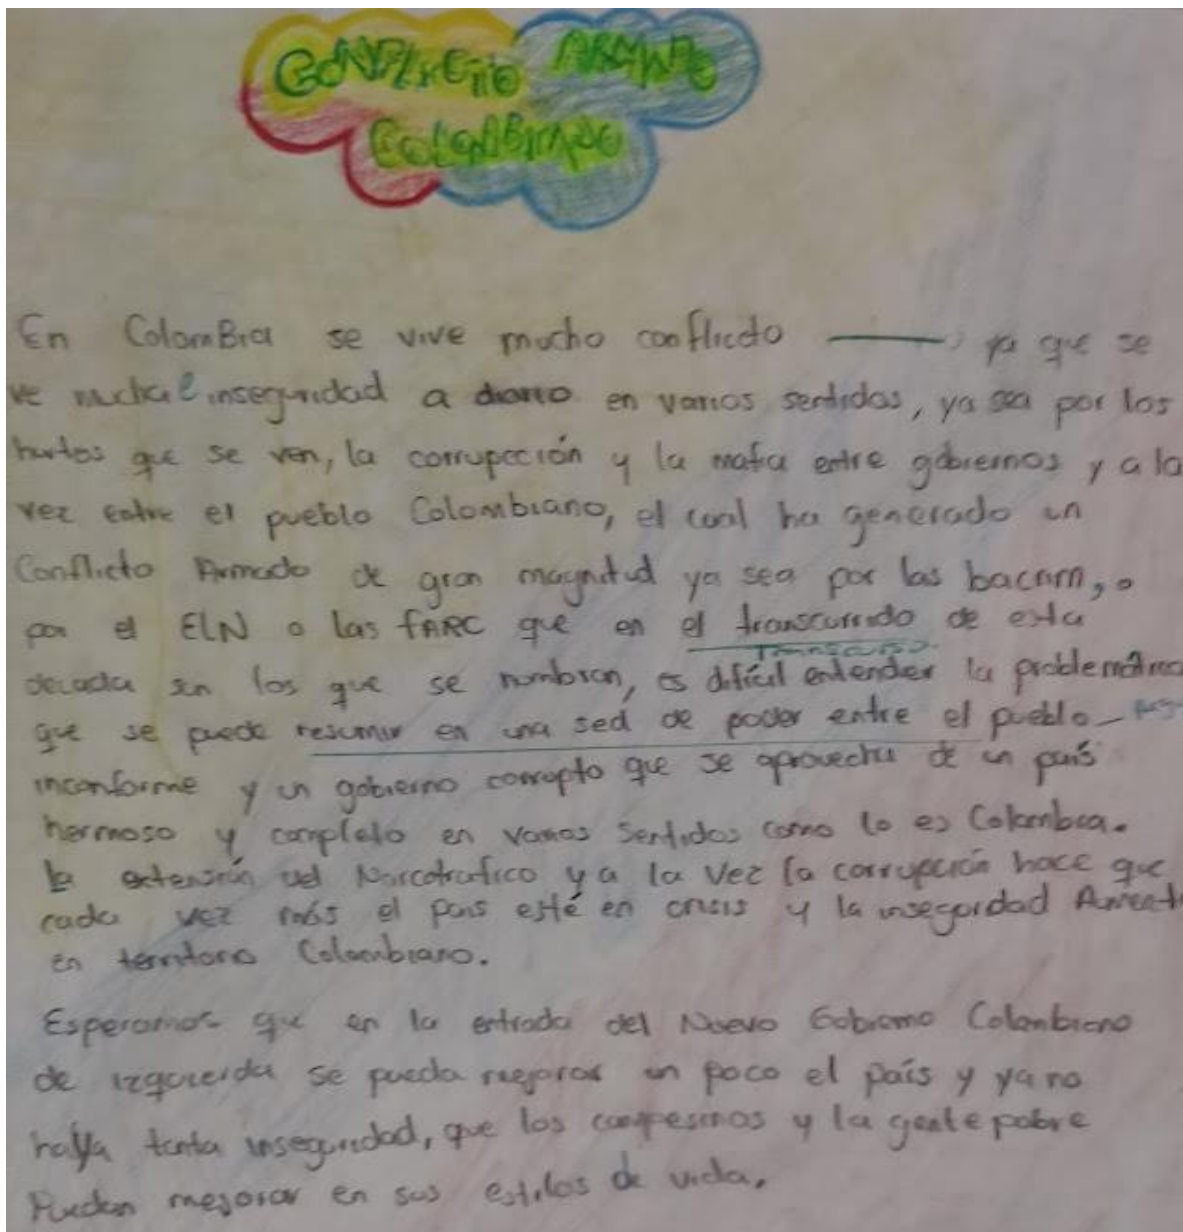 CONFLICTO ARMADO
COLOMBIANO
En ColomBia se vive mucho conflicto ya que se
ve mucha inseguridad a diario en varios sentidos, ya sea por los
hurtos que se ven, la corrupcción y la mafia entre gobiernos y a la
vez entre el pueblo Colombiano, el cual ha generado un
Conflicto Armado de gran magnitud ya sea por las bacrim, o
por el ELN o las fARC que en el transcurrido de esta
Transcurso.
decada son los que se nombran, es difícil entender la problemática
que se puede resumir en una sed de poder entre el pueblo
inconforme y un gobierno corrupto que se aprovecha de un país
hermoso y completo en varios sentidos como lo es Colombia.
la extensión del Narcotrafico y a la vez la corrupción hace que
cada vez más el pais esté en crisis y la inseguridad Aumente
en territorio Colombiano.
Esperamos que en la entrada del Nuevo Gobierno Colombiano
de izquierda se pueda mejorar un poco el país y ya no
halla tanta inseguridad, que los campesinos y la gente pobre
Puedan mejorar en sus estilos de vida.